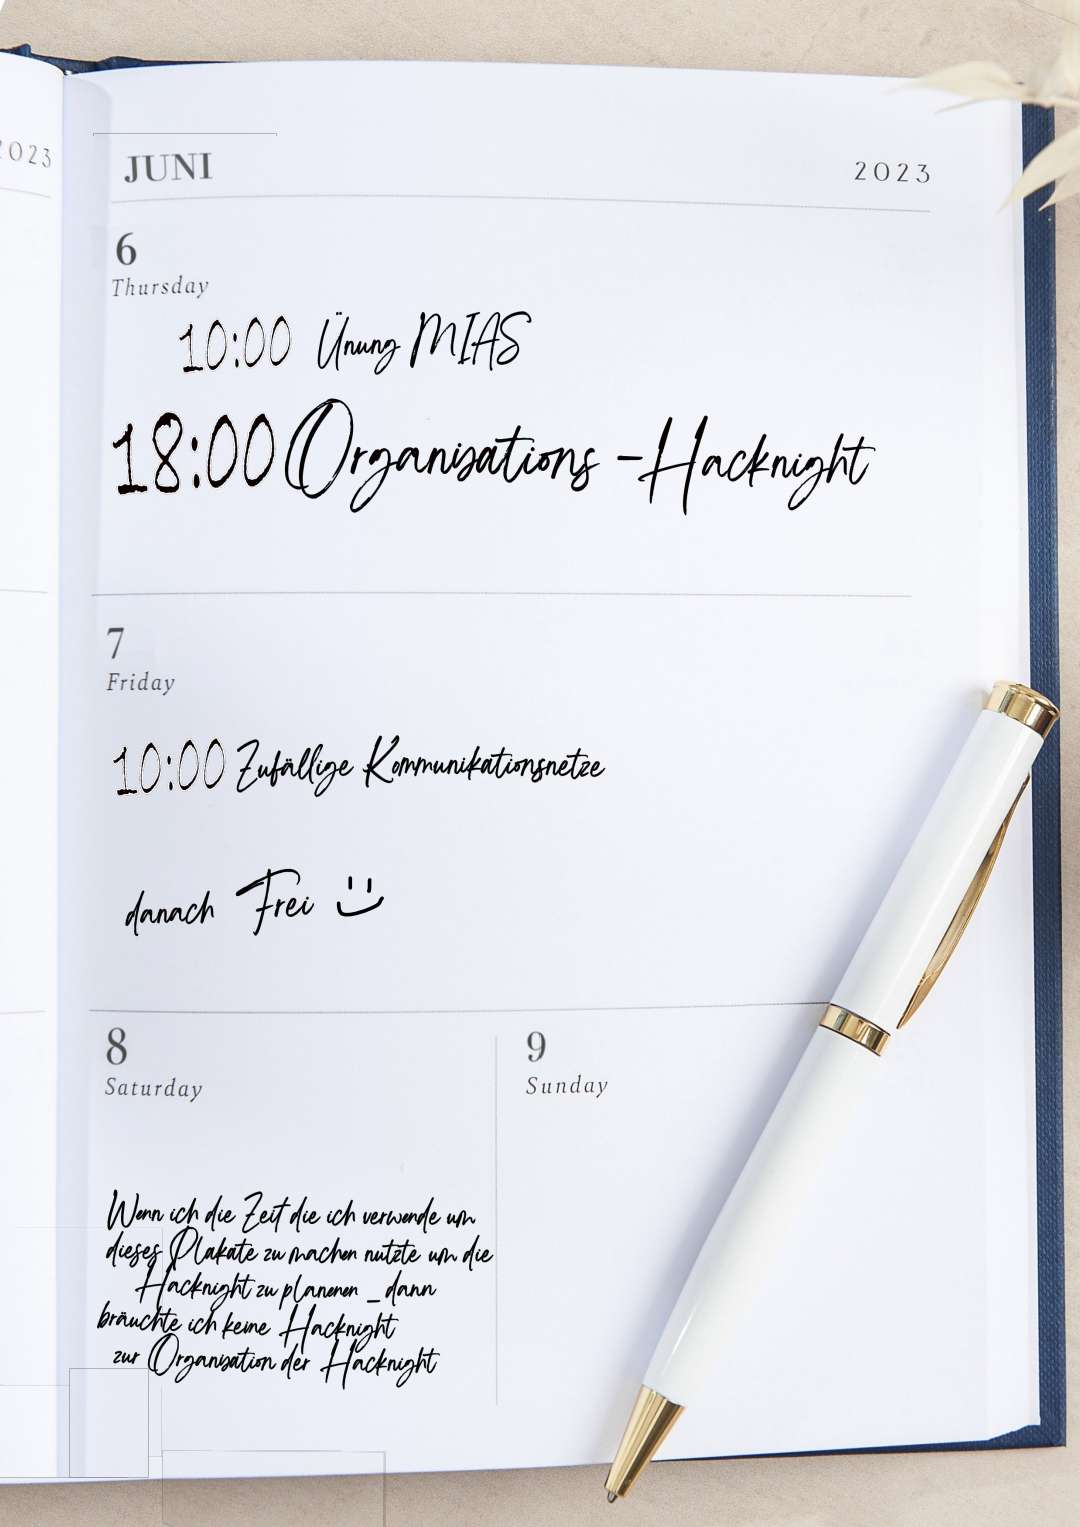 2023
JUNI 2023
6
Thursday
10:00 Ünung MIAS
18:00 Organisations -Hacknight
7
Friday
10:00 Zufällige Kommunikationsnetze
danach Frei
8
Saturday
9
Sunday
Wenn ich die Zeit die ich verwende um
dieses Plakate zu machen nutzte um die
Hacknight zu planenen _ dann
bräuchte ich keine Hacknight
zur Organisation der Hacknight